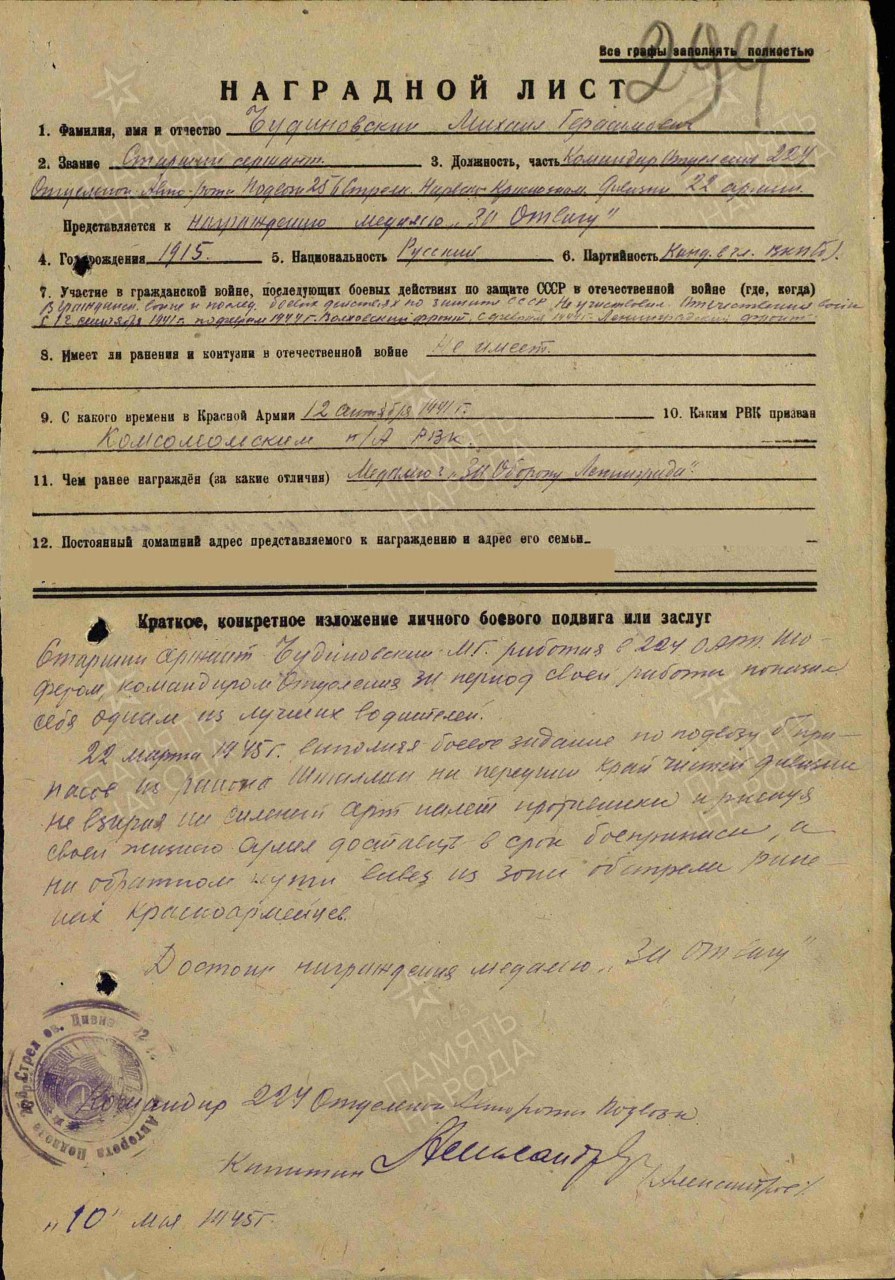 Все графы заполнять полностью
299
НАГРАДНОЙ ЛИСТ
1. Фамилия, имя и отчество Чудиновский Михаил Герасимович
2. Звание Старший сержант 3. Должность, часть Командир Отделения 224
Отдельной Авто-роты Подвоза 256 Стрелк. Нарвской Краснознам. дивизии 22 армии.
Представляется к награждению медалью „За Отвагу"
4. Год рождения 1915. 5. Национальность Русский 6. Партийность Канд. в чл. ВКП(б).
7. Участие в гражданской войне, последующих боевых действиях по защите СССР в отечественной войне (где, когда)
В гражданск. войне и послед. боевых действиях по защите СССР не участвовал. Отечественная война
с 12 сентября 1941г. по февраль 1944г. Волховский фронт, с февраля 1944г. Ленинградский фронт.
8. Имеет ли ранения и контузии в отечественной войне Не имеет.
9. С какого времени в Красной Армии 12 сентября 1941г. 10. Каким РВК призван
Комсомольским н/А РВК.
11. Чем ранее награждён (за какие отличия) Медалью „За Оборону Ленинграда".
12. Постоянный домашний адрес представляемого к награждению и адрес его семьи
Краткое, конкретное изложение личного боевого подвига или заслуг
Старший сержант Чудиновский М.Г. работая в 224 о.а.р.п. шо-
фером, командиром Отделения за период своей работы показал
себя одним из лучших водителей.
22 марта 1945г. выполняя боевое задание по подвозу б/при-
пасов из района на передний край частей дивизии
не взирая на сильный арт налет противника и рискуя
своей жизнью сумел доставить в срок боеприпасы, а
на обратном пути вывез из зоны обстрела ране-
ных красноармейцев.
Достоин награждения медалью „За отвагу"
Командир 224 Отдельной Автороты Подвоза
Капитан /Александров/
„10" мая 1945г.
Стрелков. Дивизия
Авторота Подвоза
ПАМЯТЬ НАРОДА